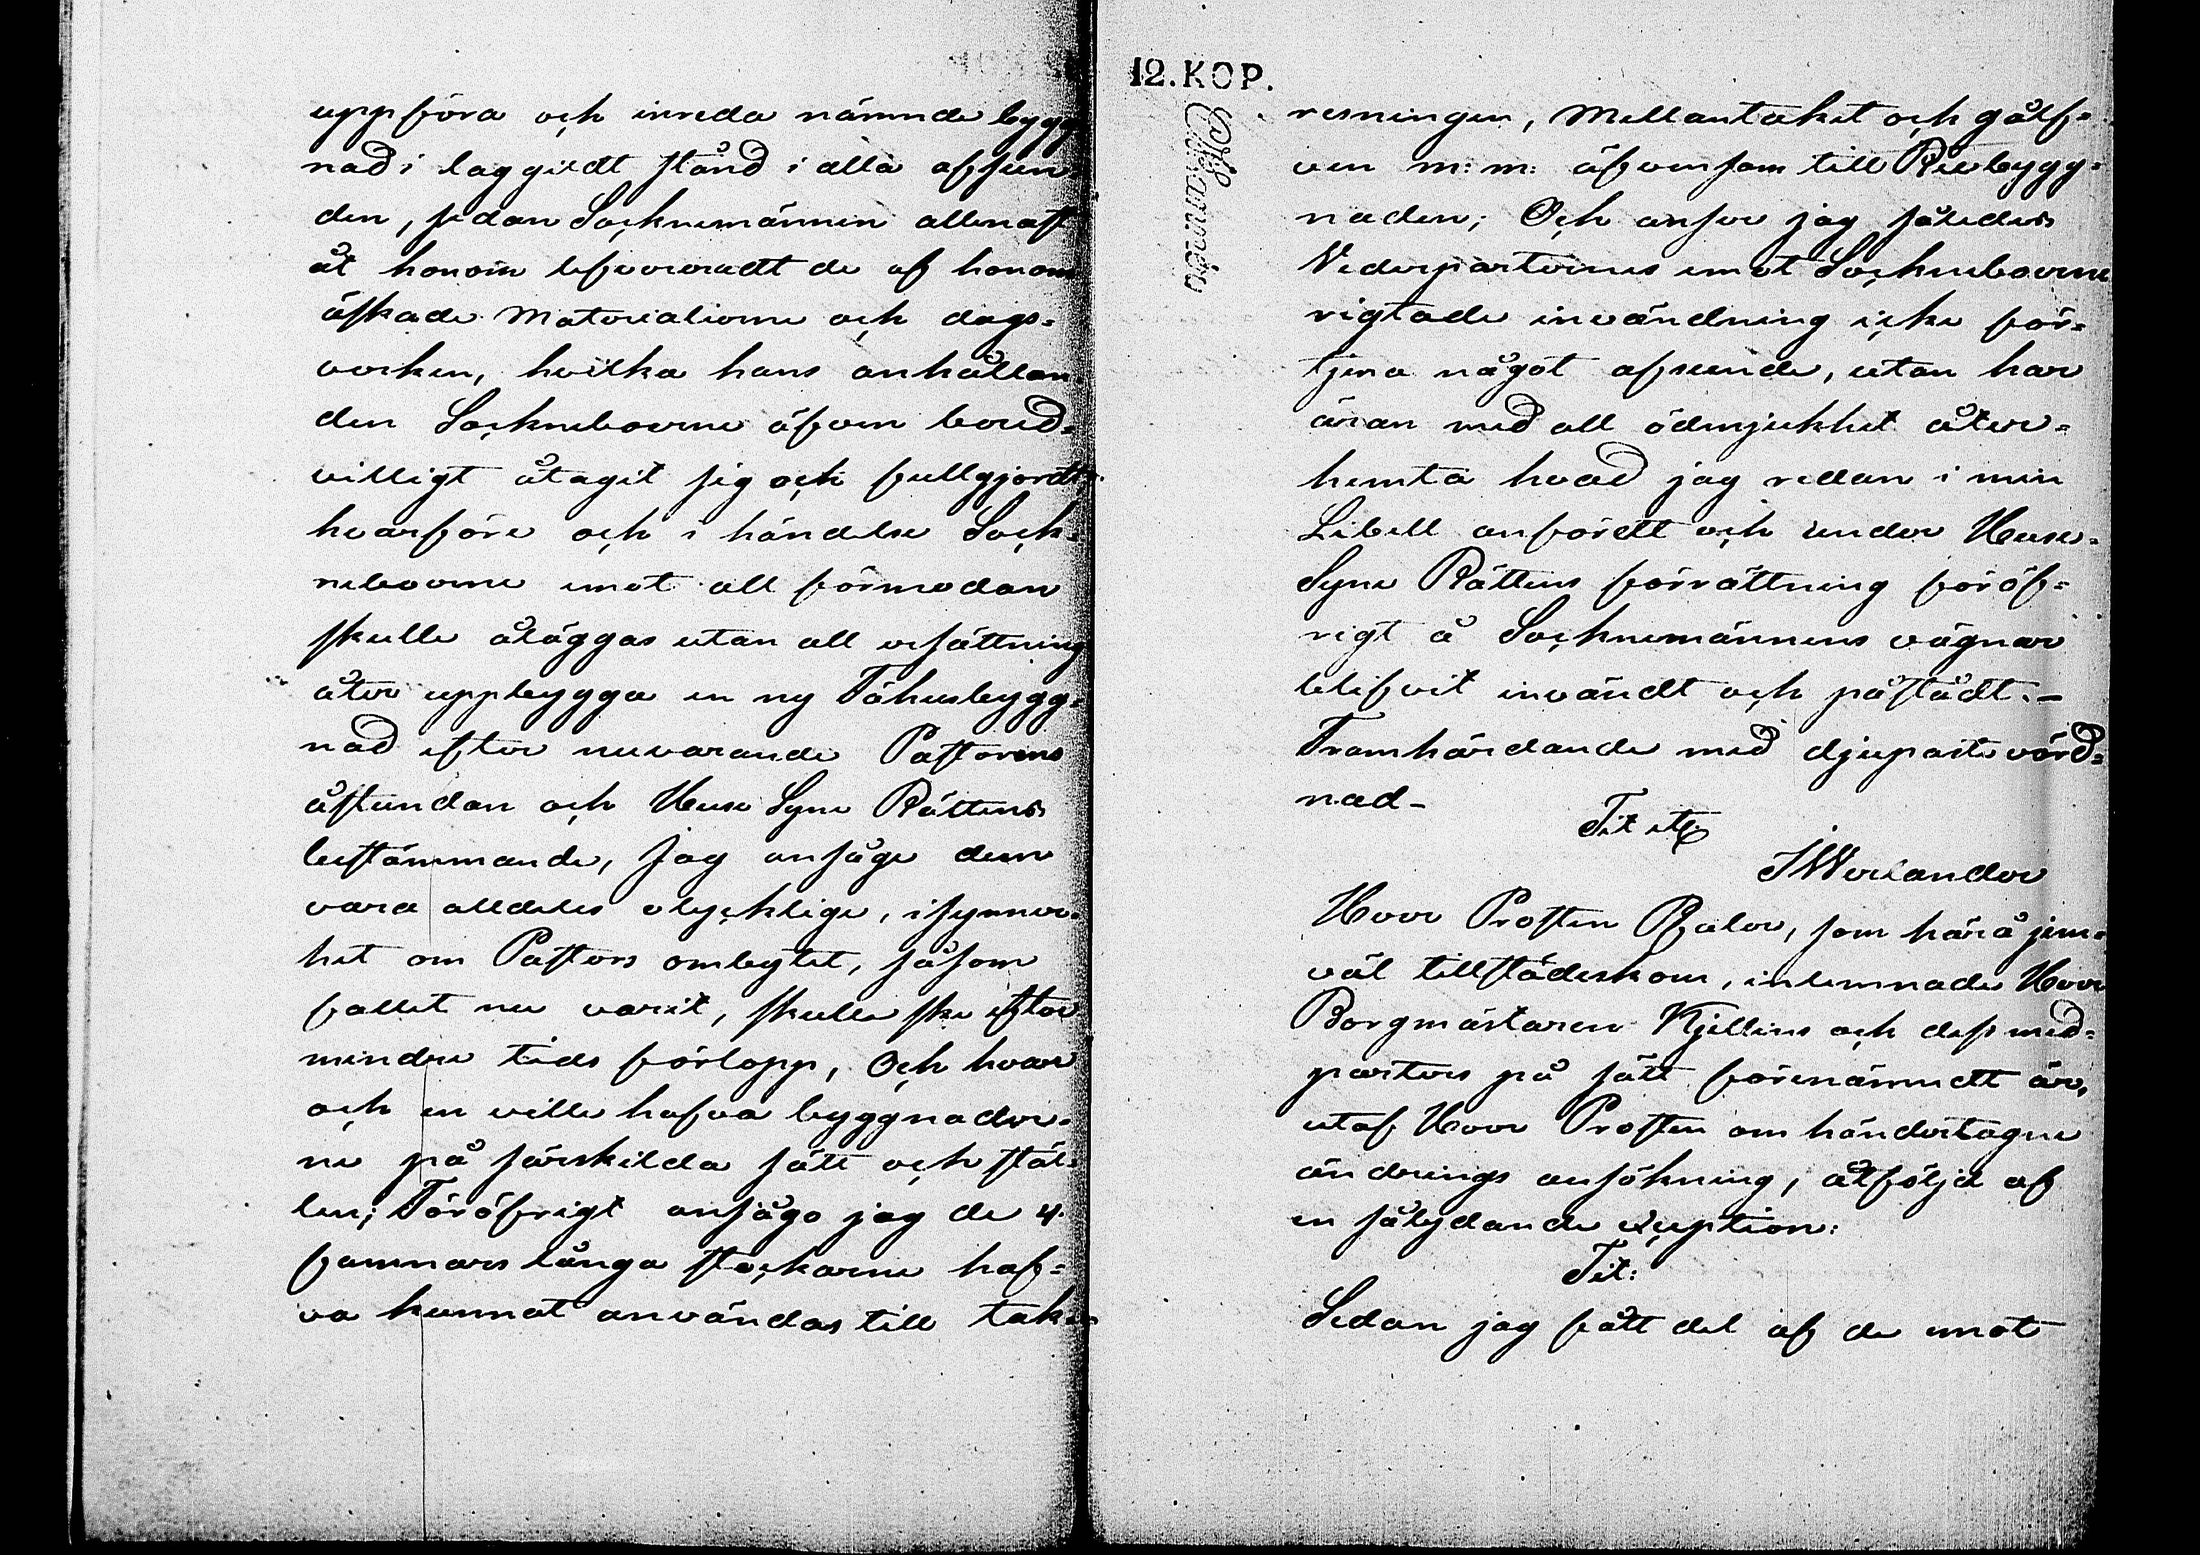 uppföra och inreda nämnde bygg-
nad i laggildt stånd i alla afseen-
den, sedan Socknemännen allenast
åt honom lefvereradt de af honom
äskade Materialierne och dags-
verken, hvilka hans anhållan-
den Sockneboerne äfven bered-
villigt åtagit sig och fullgjordt,
hvarföre och i händelse Sock-
neboerne emot all förmodan
skulle åläggas utan all ersättning
åter uppbygga en ny Fähusbygg-
nad efter nuvarande Pastorens
åstundan och Huse Syne Rättens
bestämmande, jag ansåge dem
vara alldeles olycklige, isynner-
het om Pastors ombytet, såsom
fallet nu varit, skulle ske efter
mindre tids förlopp, Och hvar
och en ville hafva byggnader-
ne på särskilda sätt och stäl-
len; Föröfrigt ansågo jag de 4.
famnars långa stockarne haf-
va kunnat användas till tak-
12. KOP.
resningen, Mellantaket och gålf-
ven m: m: äfvensom till Riebygg-
naden; Och anser jag således
Vederparternes emot Sockneboerne
rigtade invändning icke för-
tjena något afseende, utan har
äran med all ödmjukhet åter-
hemta hvad jag redan i min
Libell anfördt och under Huse-
Syne Rättens förrättning föröf-
rigt å Socknemännens vägnar
blifvit invändt och påstådt.-
Framhärdande med djupaste vörd-
nad-
Tit etc
J Welander
Herr Prosten Pfaler, som härå jem-
väl tillstädeskom, inlemnade Herr
Borgmästaren Kjellins och dess med-
parters på sätt förenämndt är,
utaf Herr Prosten om händertagne
ändrings ansökning, åtföljd af
en sålydande exception:
Tit:
Sedan jag fått del af de emot